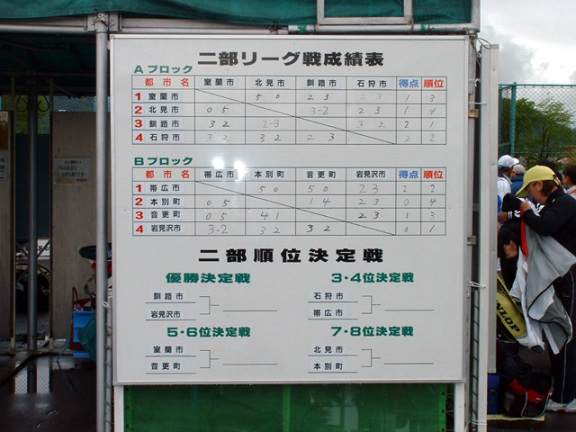 二部リーグ戦成績表
Aブロック
都市名 室蘭市 北見市 釧路市 石狩市 得点 順位
1 室蘭市 5 0 2 3 1 3
2 北見市 0 5 3-2 2 3 1 4
3 釧路市 3 2 2-3 3 2 2 1
4 石狩市 3 2 3 2 2 3 2 2
Bブロック
都市名 帯広市 本別町 音更町 岩見沢市 得点 順位
1 帯広市 5 0 5 0 2-3 2 2
2 本別町 0 5 1 4 2 3 0 4
3 音更町 0 5 4 1 2 3 1 3
4 岩見沢市 3-2 3 2 3 2 1
二部順位決定戦
優勝決定戦 3・4位決定戦
釧路市 石狩市
岩見沢市 帯広市
5・6位決定戦 7・8位決定戦
室蘭市 北見市
音更町 本別町
DUNLOP